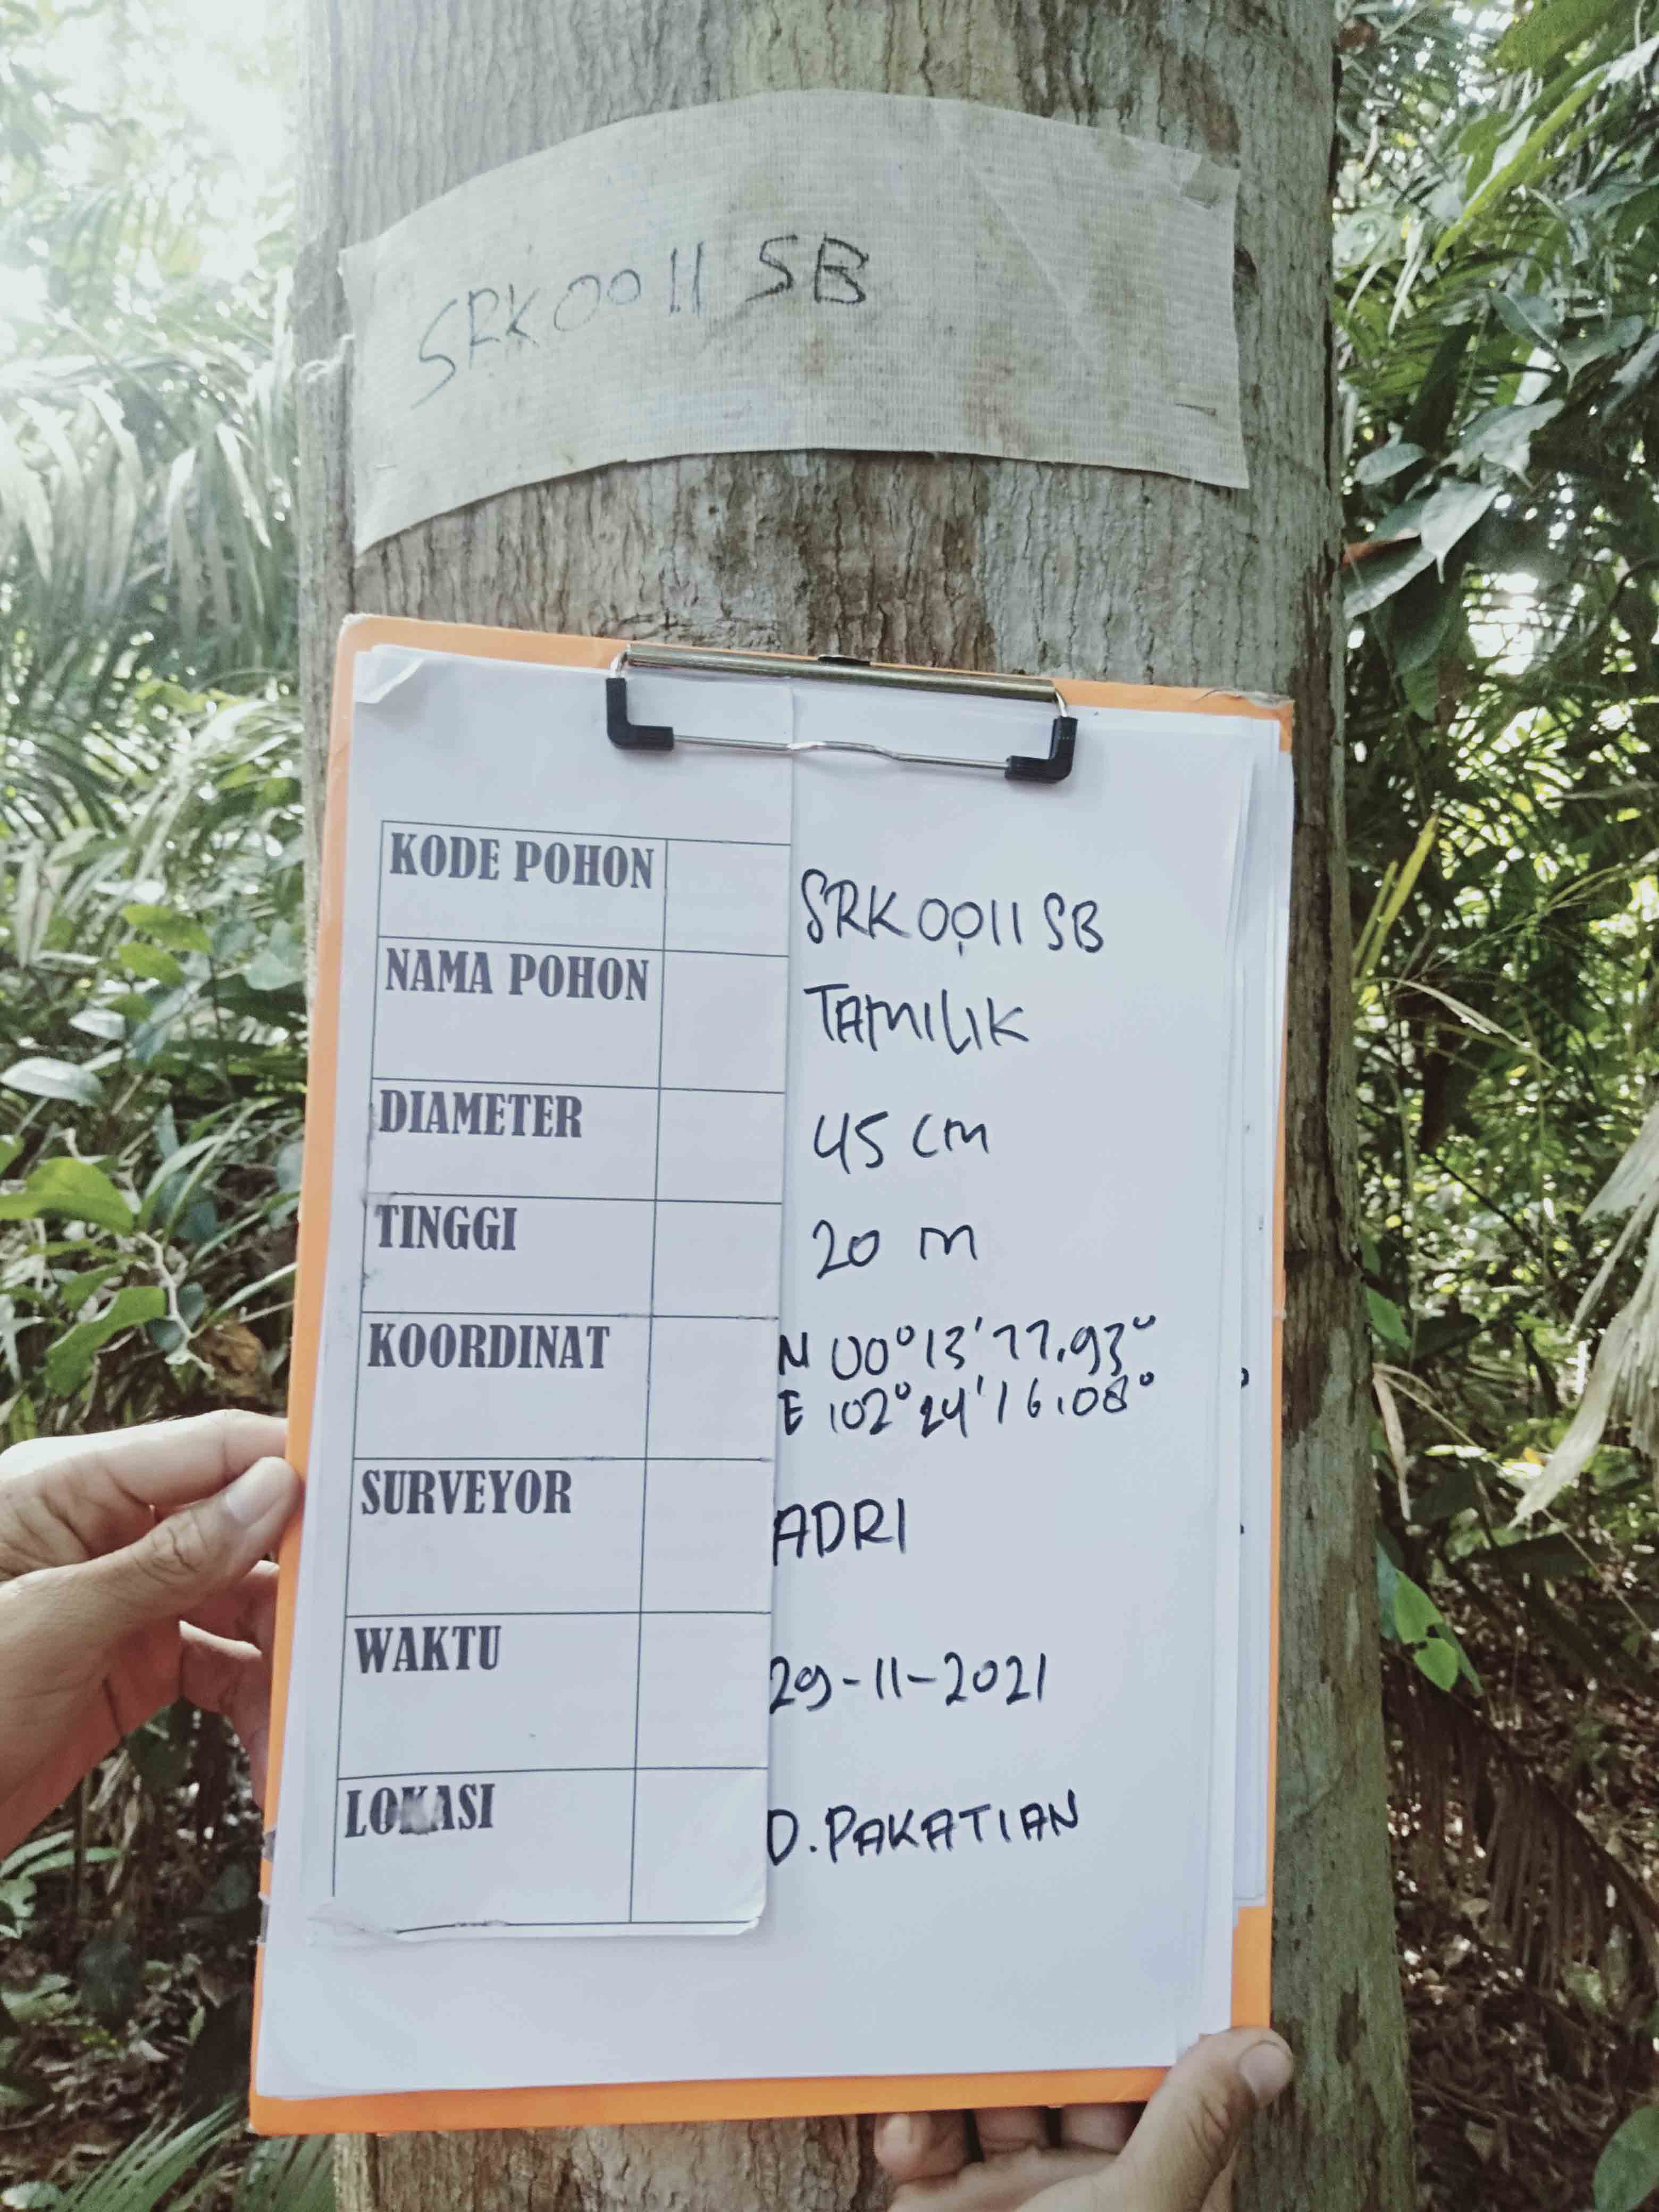 SRK0011 SB
KODE POHON SRK0011SB
NAMA POHON TAMILIK
DIAMETER 45 cm
TINGGI 20 m
KOORDINAT N 00°13'77.93°
E 102°24'16.08°
SURVEYOR ADRI
WAKTU 29-11-2021
LOKASI D.PAKATIAN